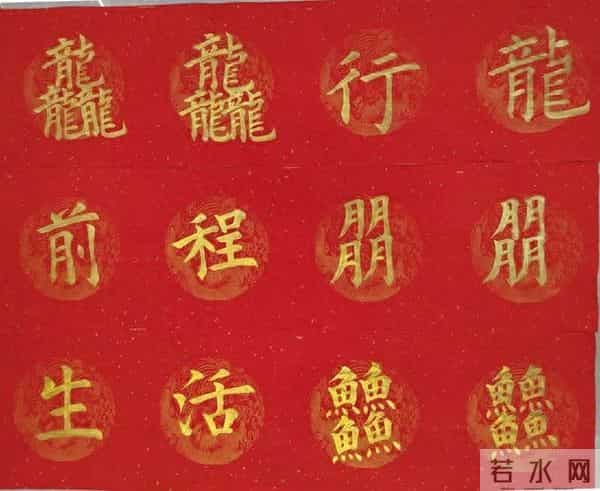 龍行龘龘
前程朤朤
生活䲜䲜
若水网